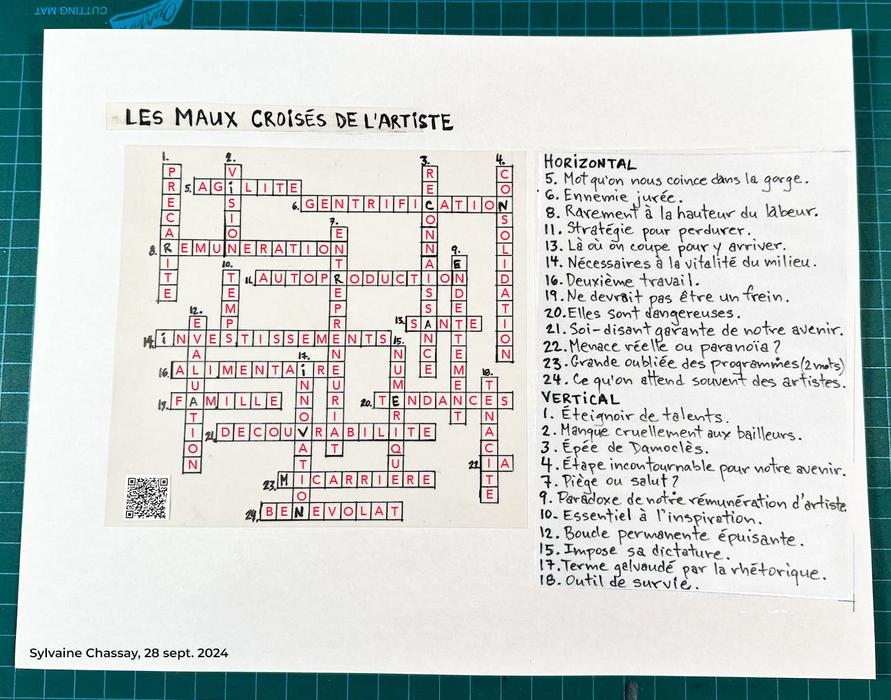 CUTTING MAT
LES MAUX CROISÉS DE L'ARTISTE
1. PRECARITE
2. ViSION
3. RECONNAISSANCE
4. CONSOLIDATION
5. AGiLITE
6. GENTRIFICATION
7. ENTREPRENEURIAT
8. REMUNERATION
9. ENDETTEMENT
10. TEMPS
11. AUTOPRODUCTION
12. EVALUATION
13. SANTE
14. iNVESTISSEMENTS
15. NUMERIQUE
16. ALIMENTAiRE
17. iNNOVATION
18. TENACITE
19. FAMILLE
20. TENDANCES
21. DECOUVRABILITE
22. IA
23. MICARRIERE
24. BENEVOLAT
HORIZONTAL
5. Mot qu'on nous coince dans la gorge.
6. Ennemie jurée.
8. Rarement à la hauteur du labeur.
11. Stratégie pour perdurer.
13. Là où on coupe pour y arriver.
14. Nécessaires à la vitalité du milieu.
16. Deuxième travail.
19. Ne devrait pas être un frein.
20. Elles sont dangereuses.
21. Soi-disant garante de notre avenir.
22. Menace réelle ou paranoïa ?
23. Grande oubliée des programmes (2 mots)
24. Ce qu'on attend souvent des artistes.
VERTICAL
1. Éteignoir de talents.
2. Manque cruellement aux bailleurs.
3. Épée de Damoclès.
4. Étape incontournable pour notre avenir.
7. Piège ou salut ?
9. Paradoxe de notre rémunération d'artiste
10. Essentiel à l'inspiration.
12. Boucle permanente épuisante.
15. Impose sa dictature.
17. Terme galvaudé par la rhétorique.
18. Outil de survie.
Sylvaine Chassay, 28 sept. 2024